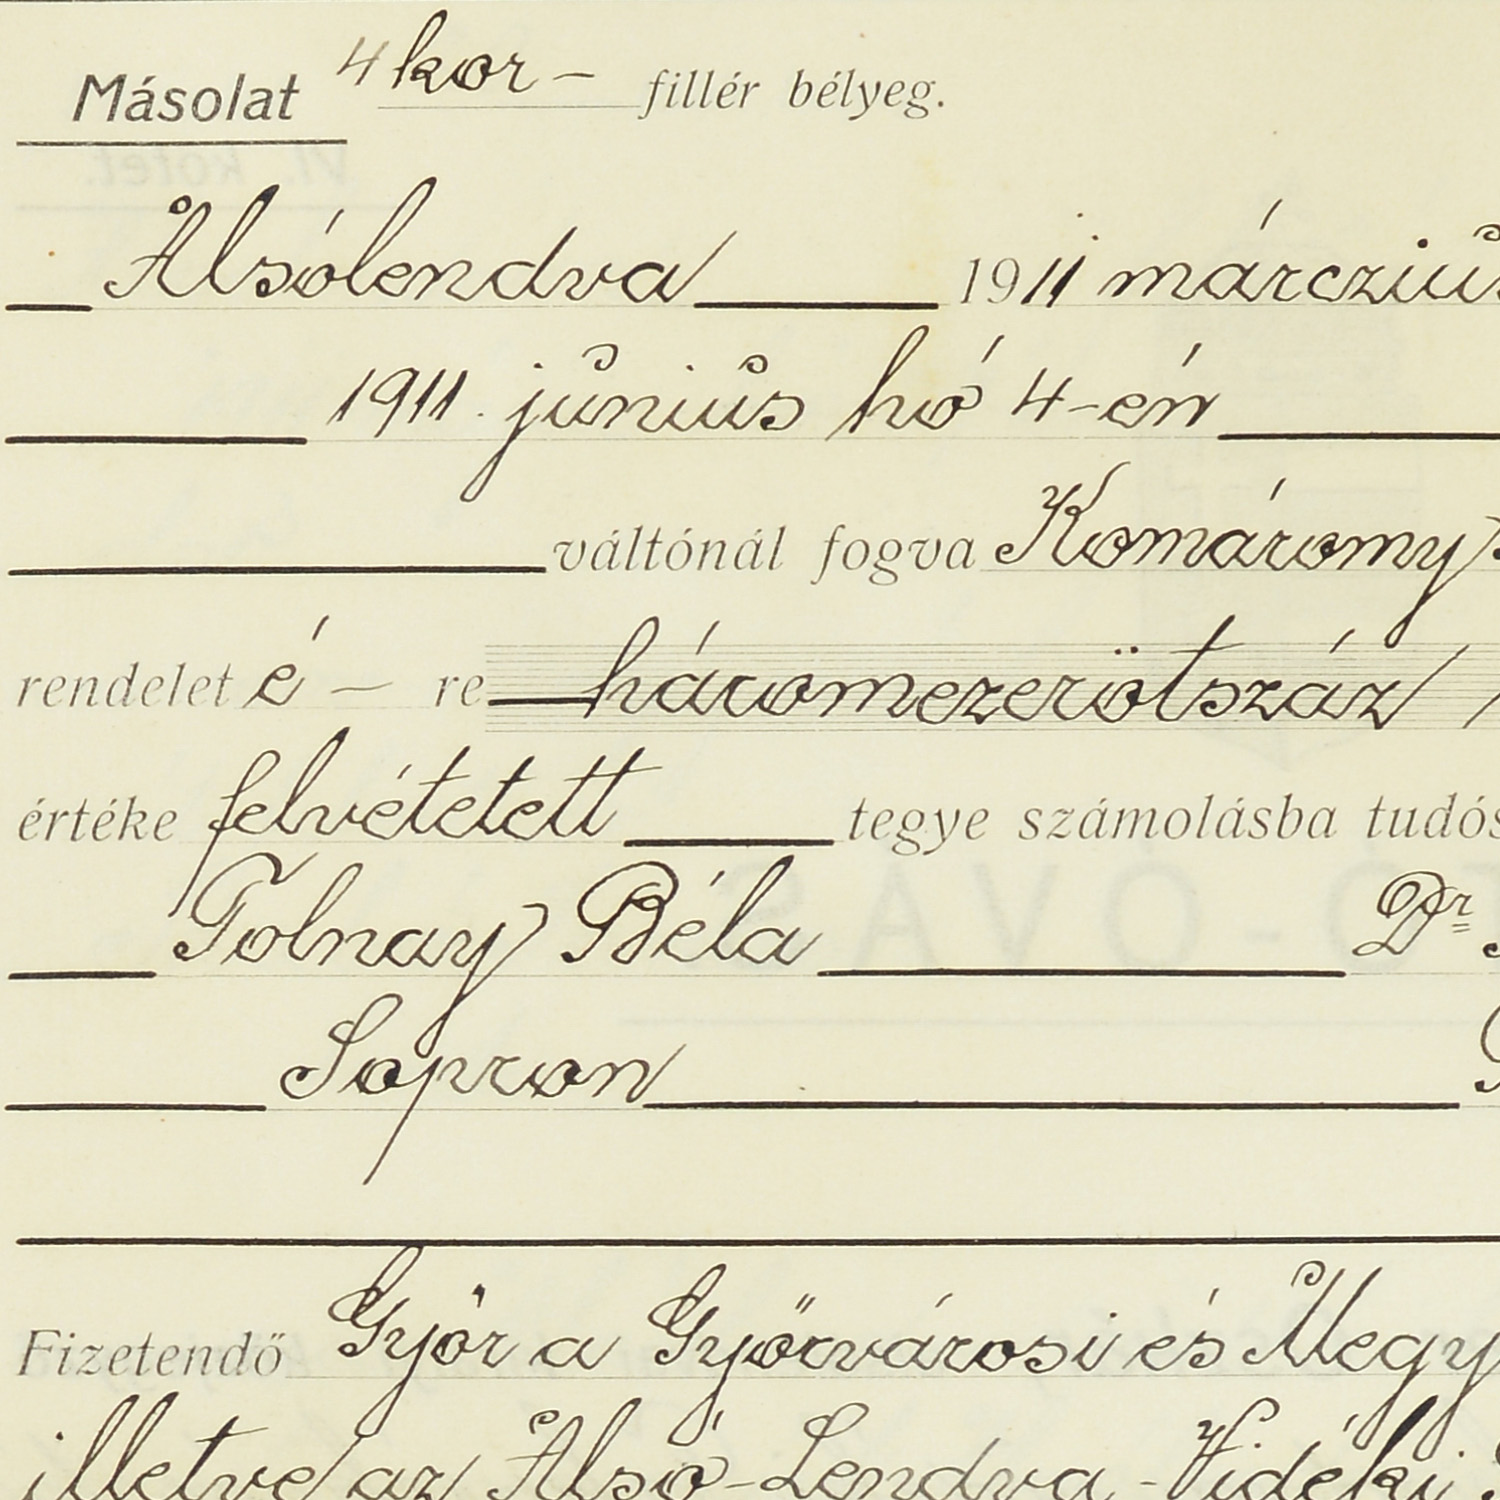 Másolat 4 kor – fillér bélyeg.
Alsólendva 1911 márczius
1911. június hó 4-én
váltónál fogva Komáromy
rendelet é – re háromezerötszáz
értéke felvétetett tegye számolásba tudós
Tolnay Béla Dr
Sopron
Fizetendő Győr a Győrvárosi és Megy
illetve az Alsó-Lendva-Vidéki